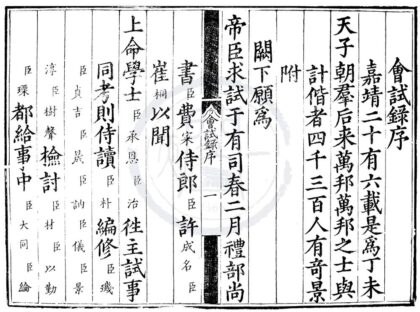 會試録序
嘉靖二十有六載是爲丁未
天子朝羣后来萬邦萬邦之士與
計偕者四千三百人有竒景
附
闕下願爲
帝臣求試于有司春二月禮部尚
會試録序 一
書臣費寀侍郎臣許成名臣
崔桐以聞
上命學士臣承恩臣治徃主試事
同考則侍讀臣朴編修臣璣
臣貞吉臣晟臣訥臣儀臣景
淳臣樹聲檢討臣材臣以勤
臣瑮都給事中臣大同臣論